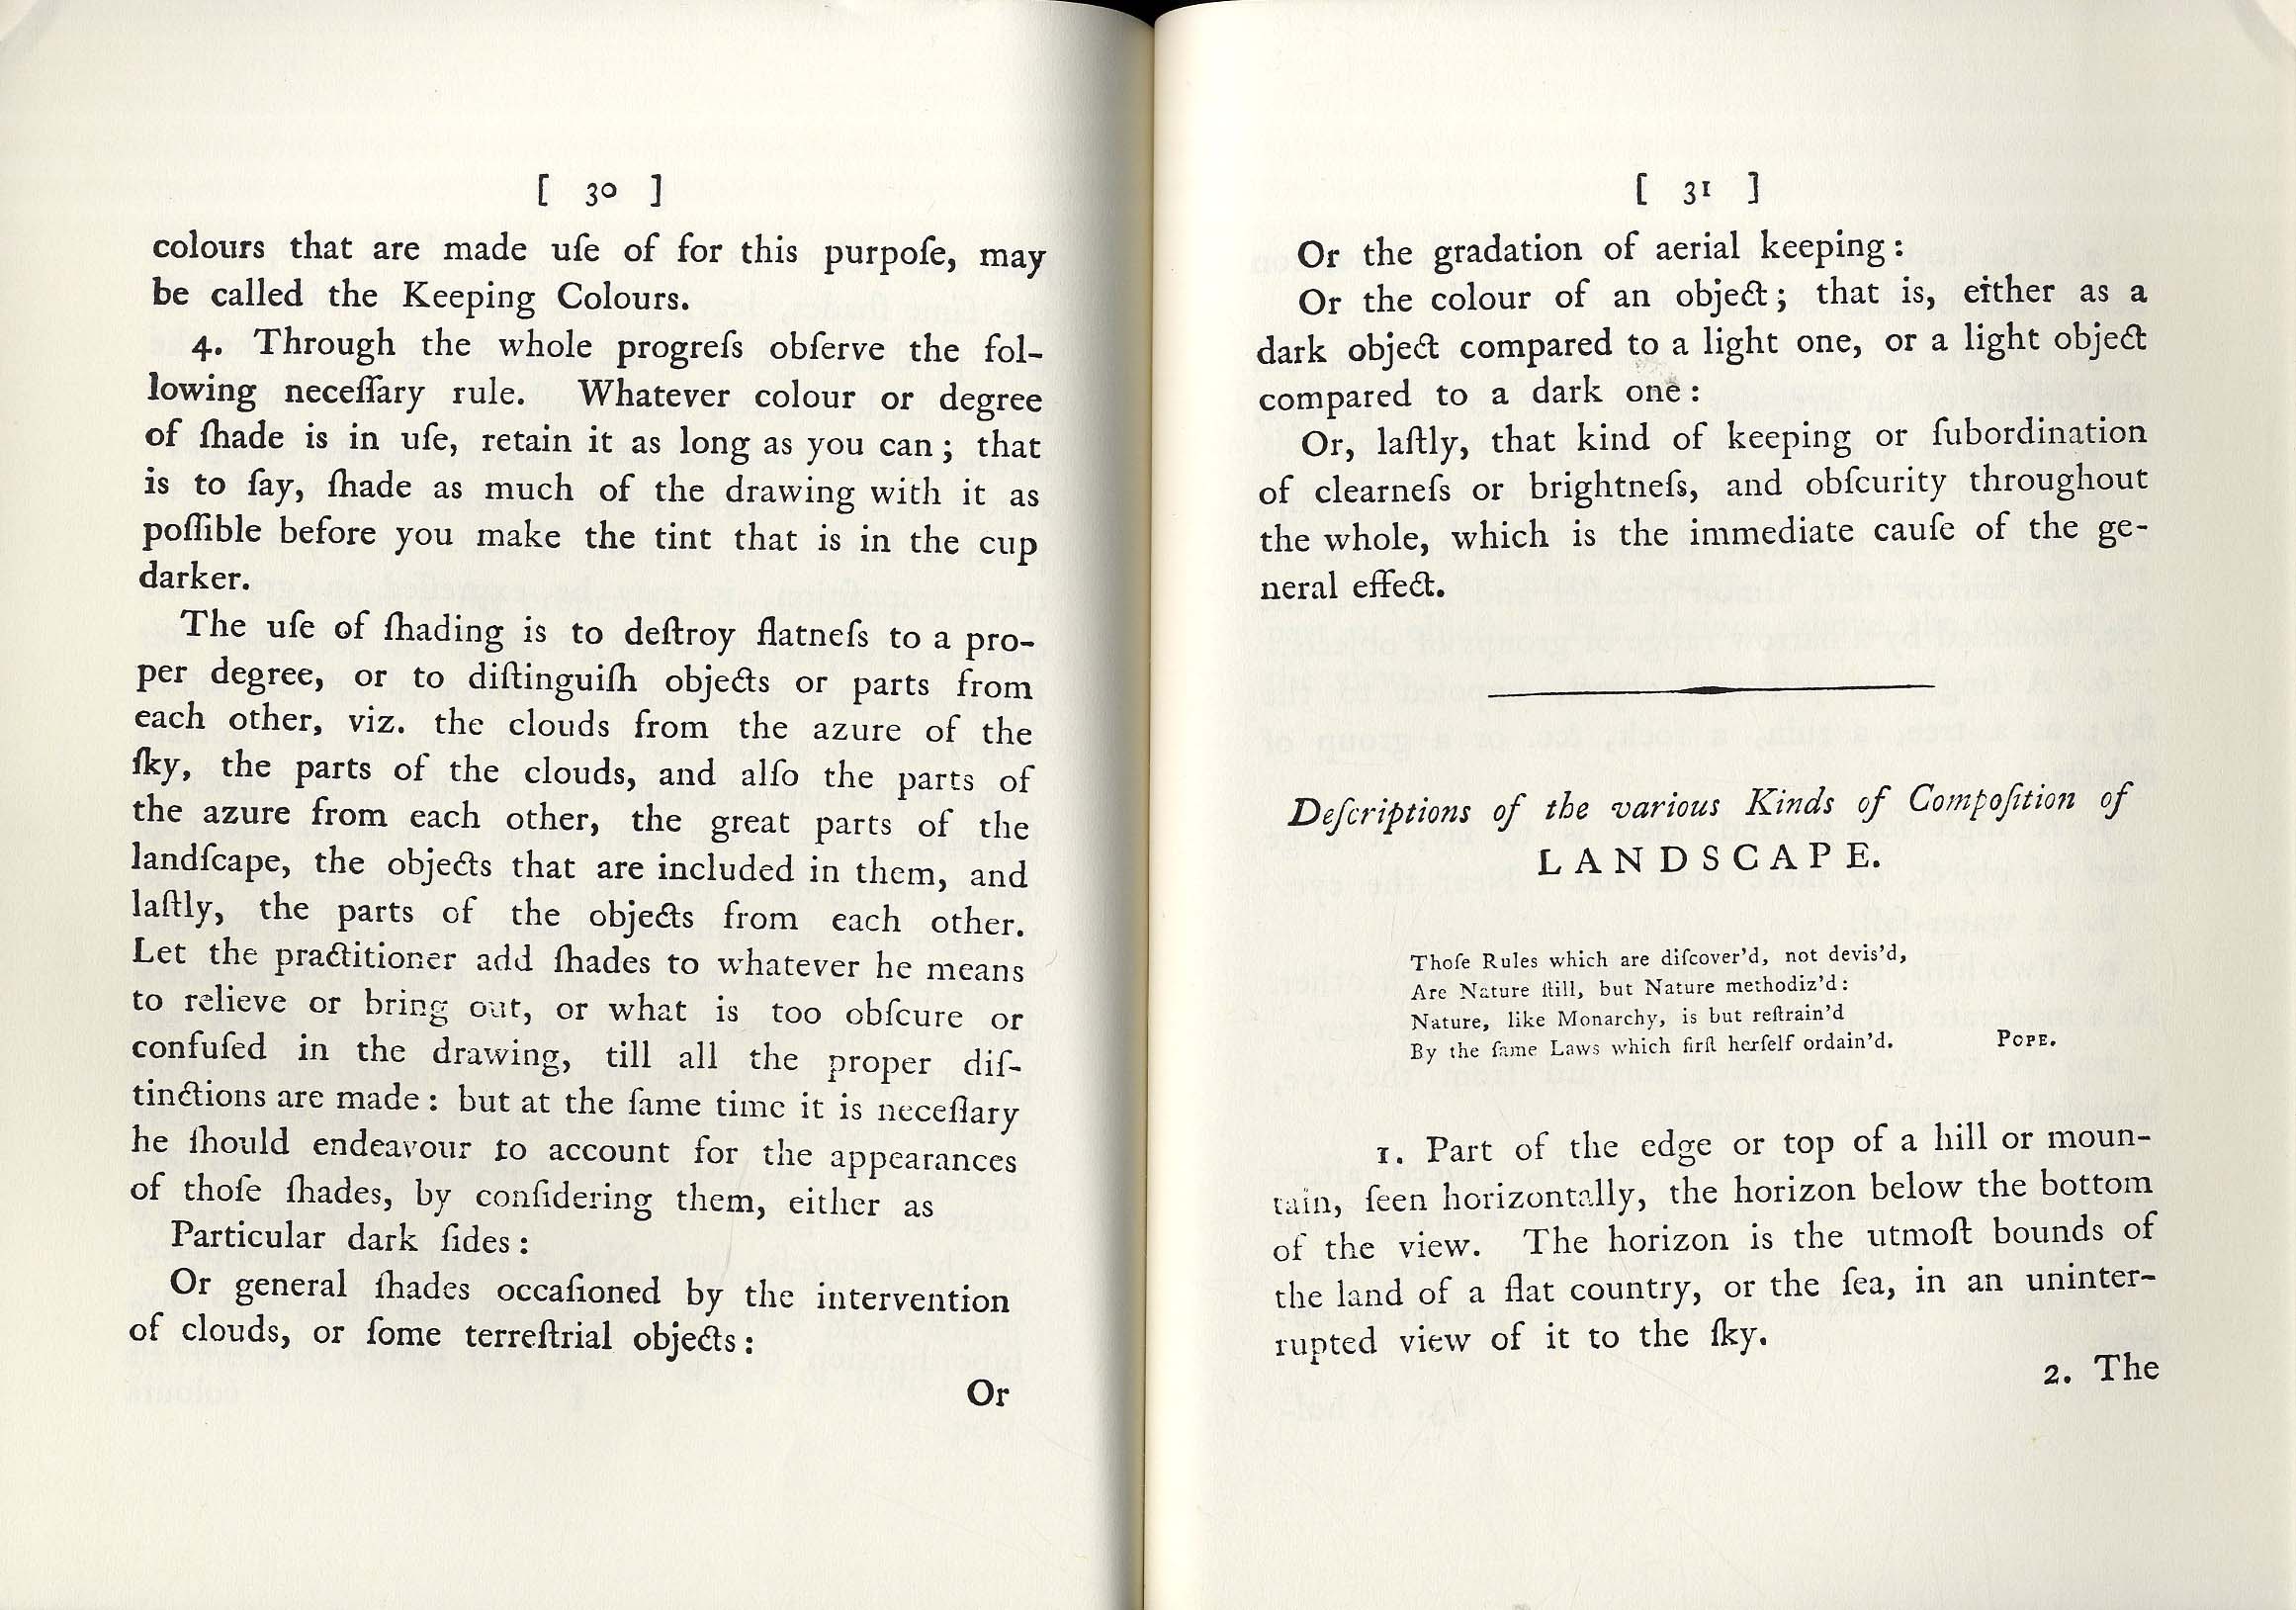 [ 30 ]
colours that are made uſe of for this purpoſe, may
be called the Keeping Colours.
4. Through the whole progreſs obſerve the fol-
lowing neceſſary rule. Whatever colour or degree
of ſhade is in uſe, retain it as long as you can; that
is to ſay, ſhade as much of the drawing with it as
poſſible before you make the tint that is in the cup
darker.
The uſe of ſhading is to deſtroy flatneſs to a pro-
per degree, or to diſtinguiſh objects or parts from
each other, viz. the clouds from the azure of the
ſky, the parts of the clouds, and alſo the parts of
the azure from each other, the great parts of the
landſcape, the objects that are included in them, and
laſtly, the parts of the objects from each other.
Let the practitioner add ſhades to whatever he means
to relieve or bring out, or what is too obſcure or
confuſed in the drawing, till all the proper diſ-
tinctions are made: but at the ſame time it is neceſſary
he ſhould endeavour to account for the appearances
of thoſe ſhades, by conſidering them, either as
Particular dark ſides:
Or general ſhades occaſioned by the intervention
of clouds, or ſome terreſtrial objects:
Or
[ 31 ]
Or the gradation of aerial keeping:
Or the colour of an object; that is, either as a
dark object compared to a light one, or a light object
compared to a dark one:
Or, laſtly, that kind of keeping or ſubordination
of clearneſs or brightneſs, and obſcurity throughout
the whole, which is the immediate cauſe of the ge-
neral effect.
Deſcriptions of the various Kinds of Compoſition of
LANDSCAPE.
Thoſe Rules which are diſcover'd, not devis'd,
Are Nature ſtill, but Nature methodiz'd:
Nature, like Monarchy, is but reſtrain'd
By the ſame Laws which firſt herſelf ordain'd. POPE.
1. Part of the edge or top of a hill or moun-
tain, ſeen horizontally, the horizon below the bottom
of the view. The horizon is the utmoſt bounds of
the land of a flat country, or the ſea, in an uninter-
rupted view of it to the ſky.
2. The